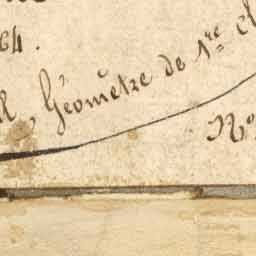 64.
, Géomètre de 1re cl
No